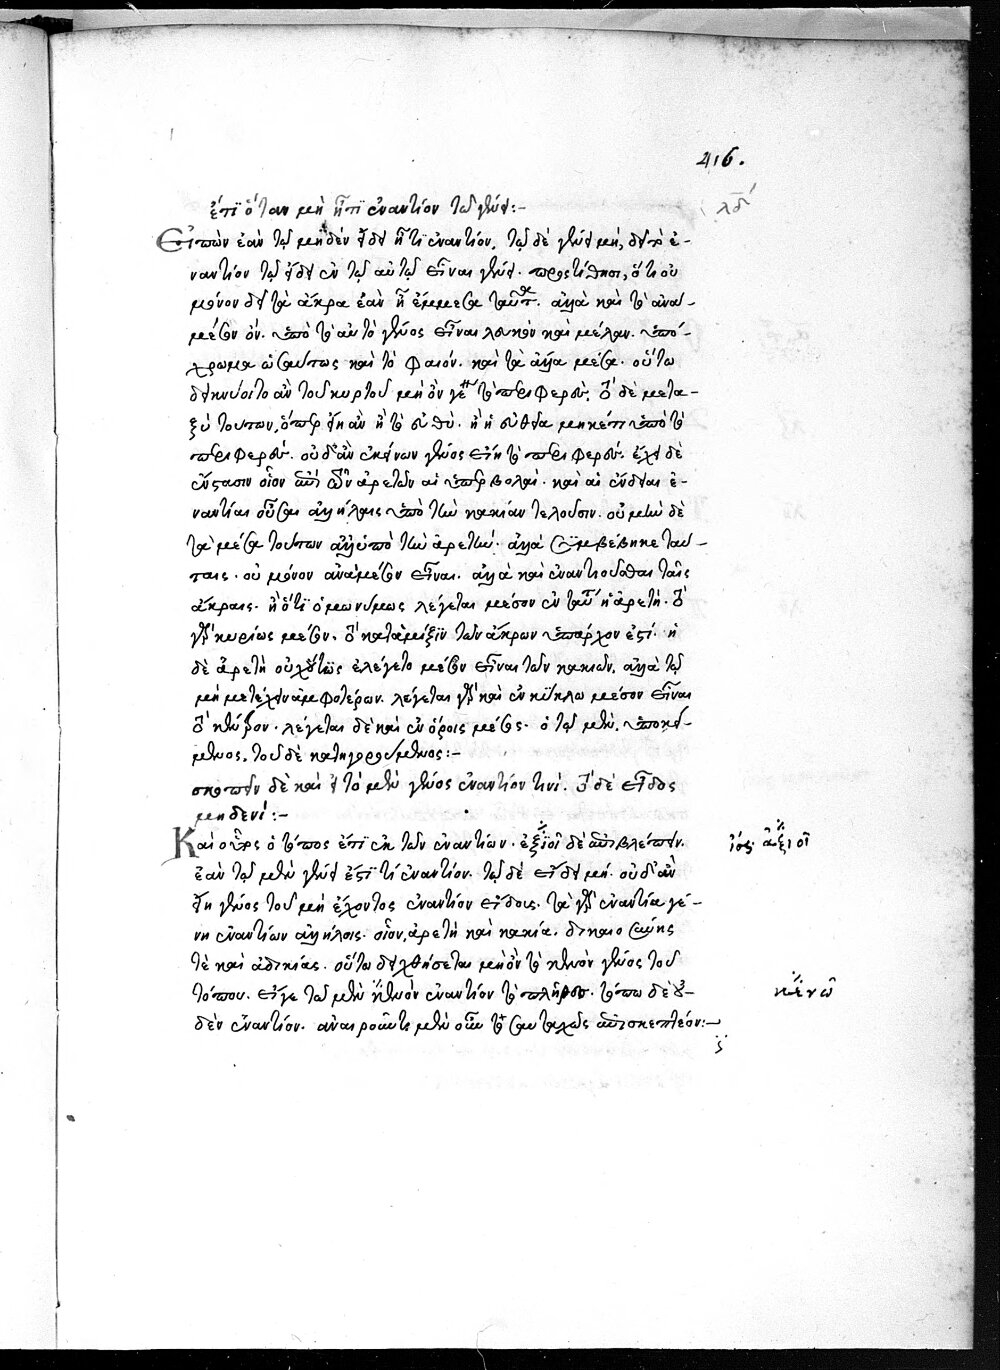 416.
ἔτι ὅταν μὴ ᾖ τι ἐναντίον τῷ γένει:– λδ
Εἰπὼν ἐὰν τῷ μηδὲν εἴδει ᾖ τι ἐναντίον, τῷ δὲ γένει μή, δεῖ τὸ ἐ-
ναντίον τῷ εἴδει ἐν τῷ αὐτῷ εἶναι γένει. προστίθησι, ὅτι οὐ
μόνον δεῖ τὰ ἄκρα ἐὰν ᾖ ἔμμεσα ἀλλὰ καὶ τὸ ἀνα-
μέσον ὄν. ὑπὸ τὸ αὐτὸ γένος εἶναι λευκὸν καὶ μέλαν. ὑπὸ
χρῶμα ὡσαύτως καὶ τὸ φαιόν. καὶ τὰ ἄλλα μέσα. οὕτω
δεικνύοιτο ἂν τοῦ κυρτοῦ μὴ ὂν γένος τὸ περιφερές. τὸ δὲ μετα-
ξὺ τούτων, ὅπερ εἴη ἂν ἢ τὸ εὐθύ. ἢ ἡ εὐθεῖα μηκέτι ὑπὸ τὸ
περιφερές. οὐδ' ἂν ἐκείνων γένος εἴη τὸ περιφερές. ἔχει δὲ
ἔνστασιν οἷον ἐπὶ τῶν ἀρετῶν αἱ ὑπερβολαί. καὶ αἱ ἔνδειαι ἐ-
ναντίαι οὖσαι ἀλλήλαις ὑπὸ τὴν κακίαν τελοῦσιν. οὐ μὴν δὲ
τὰ μέσα τούτων ἀλλ' ὑπὸ τὴν ἀρετήν. ἀλλὰ συμβέβηκε ταύ-
ταις. οὐ μόνον ἀναμέσον εἶναι. ἀλλὰ καὶ ἐναντιοῦσθαι ταῖς
ἄκραις. ἢ ὅτι ὁμωνύμως λέγεται μέσον ἐν ἡ ἀρετή. τὸ
γὰρ κυρίως μέσον. τὸ κατὰ μίξιν τῶν ἄκρων ὑπάρχον ἐστί. ἡ
δὲ ἀρετὴ οὐχ οὕτως ἐλέγετο μέσον εἶναι τῶν κακιῶν. ἀλλὰ τῷ
μὴ μετέχειν ἀμφοτέρων. λέγεται γὰρ καὶ ἐν κύκλῳ μέσον εἶναι
τὸ κέντρον. λέγεται δὲ καὶ ἐν ὅροις μέσος. ὁ τῷ μὲν, ὑποκεί-
μενος, τοῦ δὲ κατηγορούμενος:–
σκοπεῖν δὲ καὶ εἰ τὸ μὲν γένος ἐναντίον τινί. τὸ δὲ εἶδος
μηδενί:–
Καὶ οὗτος ὁ τόπος ἐπὶ ἐκ τῶν ἐναντίων. ἐξιοῖ δὲ ἐπιβλέπειν. ἴσως ἀξιοῖ
ἐὰν τῷ μὲν γένει ἐστί τι ἐναντίον. τῷ δὲ εἴδει μή. οὐδ' ἂν
εἴη γένος τοῦ μὴ ἔχοντος ἐναντίον εἴδους. τὰ γὰρ ἐναντία γέ-
νη ἐναντίων ἀλλήλοις. οἷον, ἀρετὴ καὶ κακία. δικαιοσύνης
τὲ καὶ ἀδικίας. οὕτω δειχθήσεται μὴ ὂν τὸ κενὸν γένος τοῦ
τόπου. εἴγε τῷ μὲν κενὸν ἐναντίον τὸ πλῆρες. τόπῳ δὲ οὐ- κενῶ
δὲν ἐναντίον. ἀναιροῦντι μὲν οὖν τὸ ἐπισκεπτέον:–
ζ